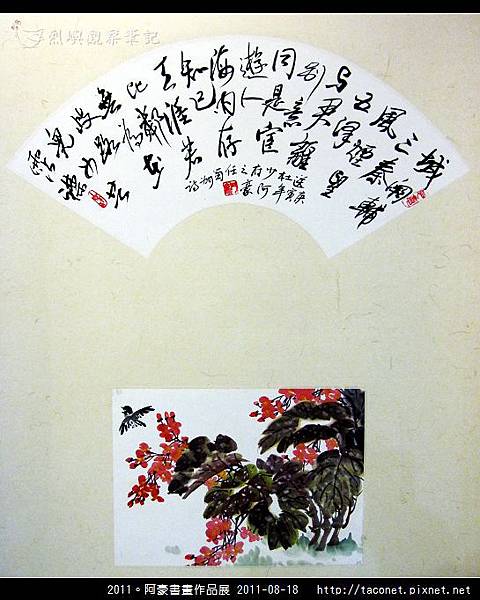 烈嶼觀察筆記
城闕輔
三秦
風煙望
五津
与君離
別意
同是宦
遊人
海内存
知己
天涯若
比鄰
無為在
歧路
兒女共
霑巾
送杜少府之任蜀州詩
2011。阿豪書畫作品展 2011-08-18 http://taconet.pixnet.net